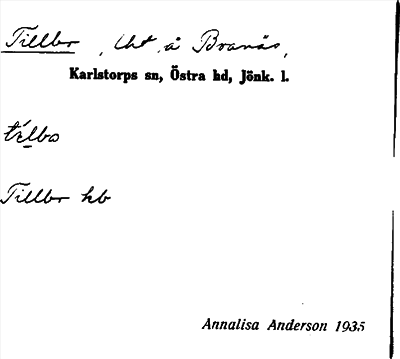 Tillbr, lht å Branäs,
Karlstorps sn, Östra hd, Jönk. l.
télbo
Tillbr hb
Annalisa Anderson 1935